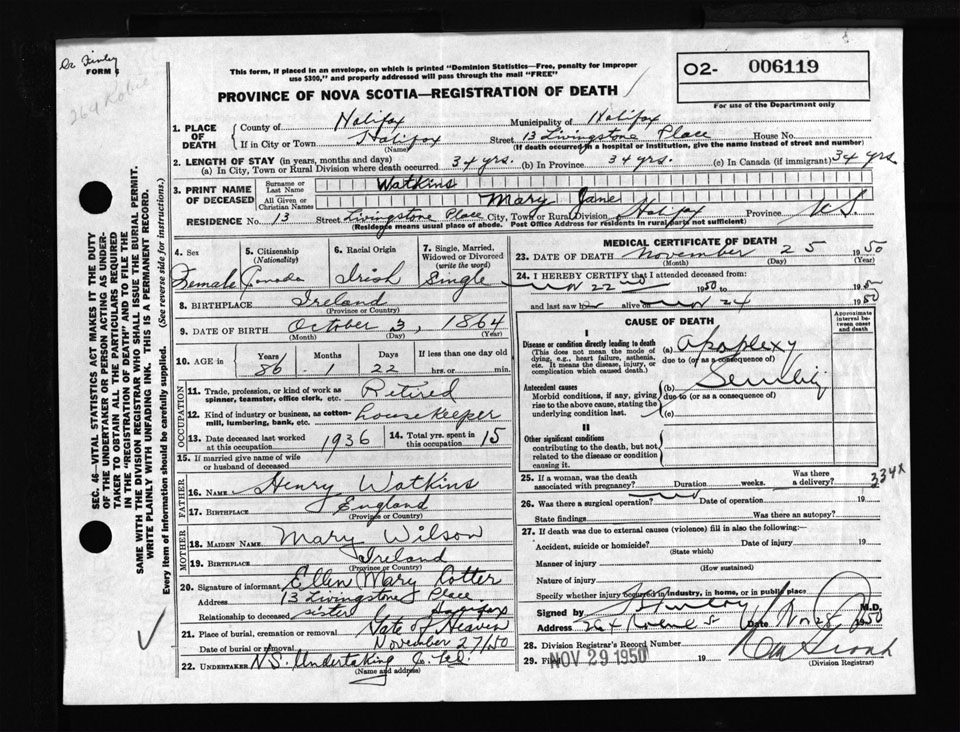 Dr Finley
FORM
264 Robie
This form, if placed in an envelope, on which is printed "Dominion Statistics—Free, penalty for improper
use $300," and properly addressed will pass through the mail "FREE"
PROVINCE OF NOVA SCOTIA—REGISTRATION OF DEATH
02- 006119
For use of the Department only
1. PLACE OF DEATH { County of Halifax Municipality of Halifax
If in City or Town Halifax (Name) Street 13 Livingstone Place House No.
(If death occurred in a hospital or institution, give the name instead of street and number)
2. LENGTH OF STAY (in years, months and days)
(a) In City, Town or Rural Division where death occurred 34 yrs. (b) In Province 34 yrs. (c) In Canada (if immigrant) 34 yrs
3. PRINT NAME OF DECEASED { Surname or Last Name Watkins
All Given or Christian Names Mary Jane
RESIDENCE No. 13 Street Livingstone Place City, Town or Rural Division Halifax Province N.S.
(Residence means usual place of abode. Post Office Address for residents in rural parts not sufficient)
4. Sex Female
5. Citizenship (Nationality) Canada
6. Racial Origin Irish
7. Single, Married, Widowed or Divorced (write the word) Single
8. BIRTHPLACE Ireland
(Province or Country)
9. DATE OF BIRTH October 3, 1864
(Month) (Day) (Year)
10. AGE in Years 86 Months 1 Days 22 If less than one day old hrs. or min.
OCCUPATION
11. Trade, profession, or kind of work as spinner, teamster, office clerk, etc. Retired
12. Kind of industry or business, as cotton-mill, lumbering, bank, etc. housekeeper
13. Date deceased last worked at this occupation 1936 14. Total yrs. spent in this occupation 15
15. If married give name of wife or husband of deceased
FATHER
16. NAME Henry Watkins
17. BIRTHPLACE England
(Province or Country)
MOTHER
18. MAIDEN NAME Mary Wilson
19. BIRTHPLACE Ireland
(Province or Country)
20. Signature of informant Ellen Mary Cotter
Address 13 Livingstone Place
Relationship to deceased sister Halifax
21. Place of burial, cremation or removal Gate of Heaven
Date of burial or removal November 27/50
22. UNDERTAKER N.S. Undertaking Co. Ltd.
(Name and address)
MEDICAL CERTIFICATE OF DEATH
23. DATE OF DEATH November 25 1950
(Month) (Day) (Year)
24. I HEREBY CERTIFY that I attended deceased from:
Nov 22nd 1950 to 195
and last saw h alive on Nov 24 1950
CAUSE OF DEATH
Approximate interval between onset and death
I
Disease or condition directly leading to death (a) Apoplexy
(This does not mean the mode of dying, e.g., heart failure, asthenia, etc. It means the disease, injury, or complication which caused death.) due to (or as a consequence of)
Antecedent causes (b) Senility
Morbid conditions, if any, giving rise to the above cause, stating the underlying condition last. due to (or as a consequence of)
(c)
II
Other significant conditions
contributing to the death, but not related to the disease or condition causing it.
25. If a woman, was the death associated with pregnancy? Duration weeks. Was there a delivery? 334X
26. Was there a surgical operation? Date of operation 19
State findings Was there an autopsy?
27. If death was due to external causes (violence) fill in also the following:—
Accident, suicide or homicide? Date of injury 19
(State which)
Manner of injury
(How sustained)
Nature of injury
Specify whether injury occurred in industry, in home, or in public place
Signed by Finley M.D.
Address 264 Robie St Date Nov 28 1950
28. Division Registrar's Record Number
29. Filed NOV 29 1950 19
(Division Registrar)
SEC. 46—VITAL STATISTICS ACT MAKES IT THE DUTY
OF THE UNDERTAKER OR PERSON ACTING AS UNDER-
TAKER TO OBTAIN ALL THE PARTICULARS REQUIRED
IN THE "REGISTRATION OF DEATH" AND TO FILE THE
SAME WITH THE DIVISION REGISTRAR WHO SHALL ISSUE THE BURIAL PERMIT.
WRITE PLAINLY WITH UNFADING INK. THIS IS A PERMANENT RECORD.
Every item of Information should be carefully supplied. (See reverse side for instructions.)